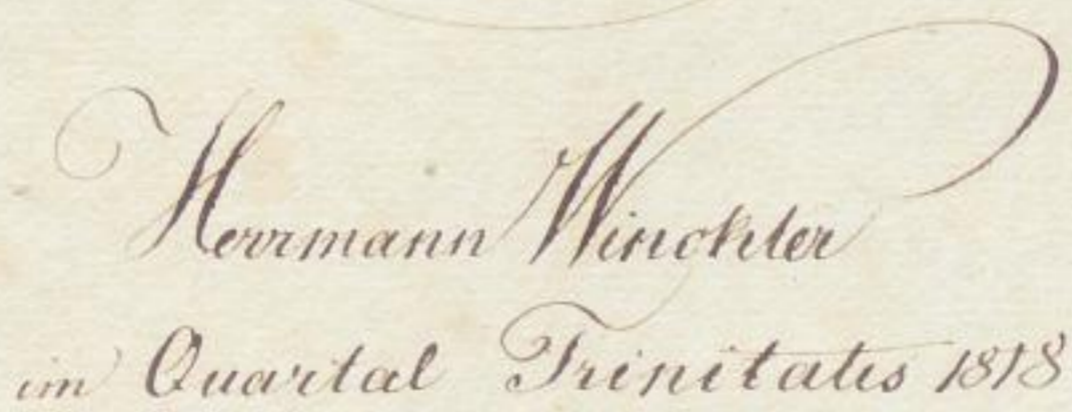 Herrmann Winckler
im Quartal Trinitatis 1818